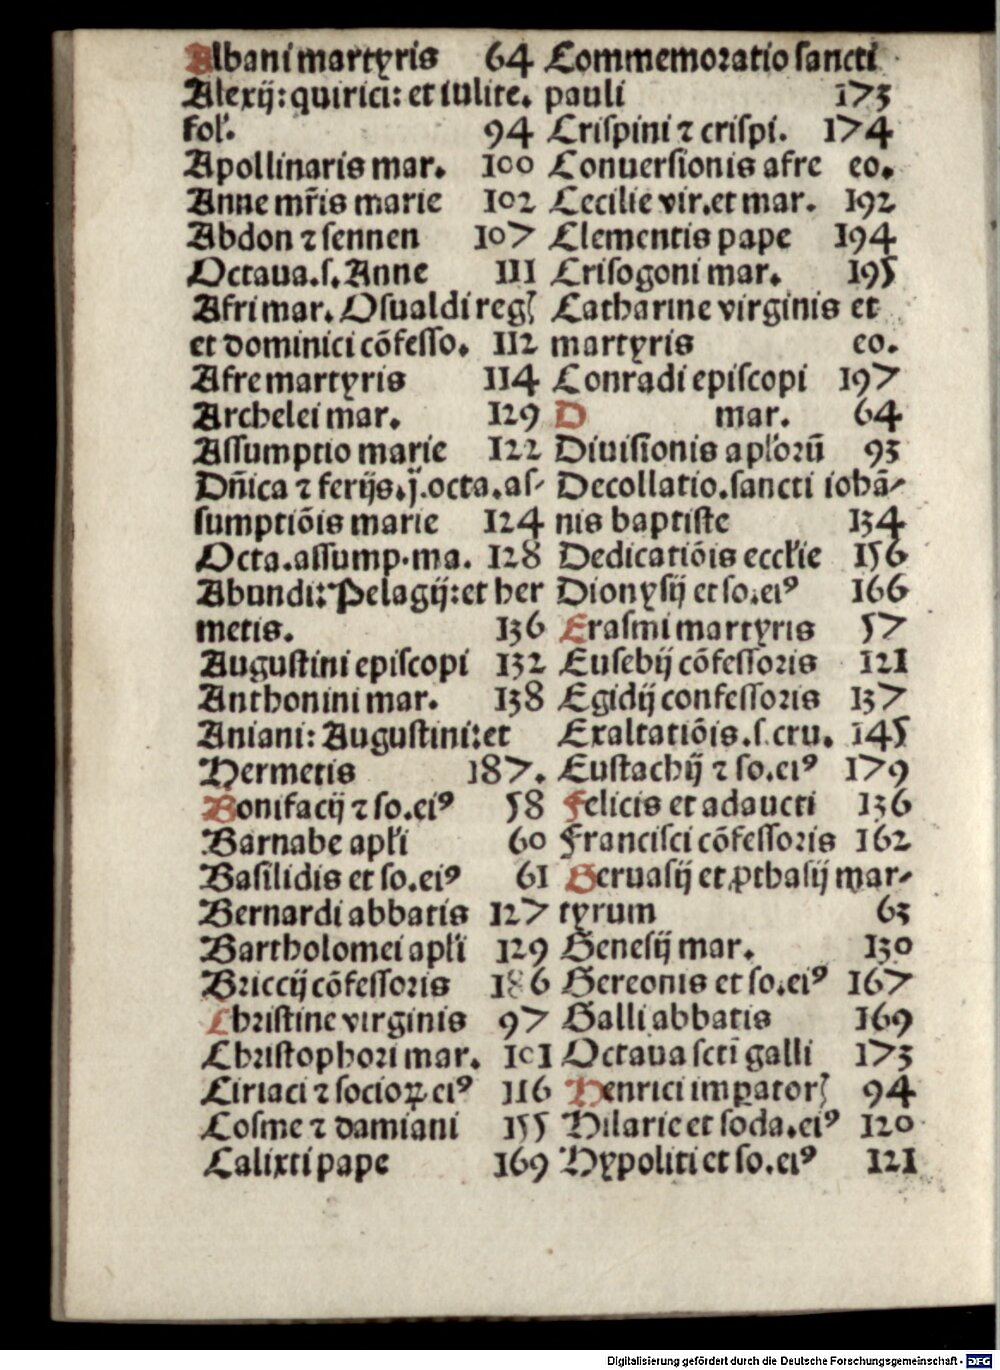 Albani martyris 64
Alexij: quirici: et iulite.
fol'. 94
Apollinaris mar. 100
Anne mr̄is marie 102
Abdon ⁊ sennen 107
Octaua.s. Anne 111
Afri mar. Osualdi regꝭ
et dominici cōfesso. 112
Afre martyris 114
Archelei mar. 129
Assumptio marie 122
Dn̄ica ⁊ ferijs.ij.octa.as-
sumptiōis marie 124
Octa.assump.ma. 128
Abundi: Pelagij: et her
metis. 136
Augustini episcopi 132
Anthonini mar. 138
Aniani: Augustini: et
Hermetis 187.
Bonifacij ⁊ so.ei⁹ 58
Barnabe apl'i 60
Basilidis et so.ei⁹ 61
Bernardi abbatis 127
Bartholomei apl'i 129
Briccij cōfessoris 186
Christine virginis 97
Christophori mar. 101
Ciriaci ⁊ socioꝝ ei⁹ 116
Cosme ⁊ damiani 155
Calixti pape 169
Commemoratio sancti
pauli 173
Crispini ⁊ crispi. 174
Conuersionis afre eo.
Cecilie vir.et mar. 192
Clementis pape 194
Crisogoni mar. 195
Catharine virginis et
martyris eo.
Conradi episcopi 197
D mar. 64
Diuisionis apl'orū 93
Decollatio.sancti iohā-
nis baptiste 134
Dedicatiōis eccl'ie 156
Dionysij et so.ei⁹ 166
Erasmi martyris 57
Eusebij cōfessoris 121
Egidij confessoris 137
Exaltatiōis.s.cru. 145
Eustachij ⁊ so.ei⁹ 179
Felicis et adaucti 136
Francisci cōfessoris 162
Geruasij et ꝓthasij mar-
tyrum 63
Genesij mar. 130
Gereonis et so.ei⁹ 167
Galli abbatis 169
Octaua sctī galli 173
Henrici imꝑatorꝭ 94
Hilarie et soda.ei⁹ 120
Hypoliti et so.ei⁹ 121
Digitalisierung gefördert durch die Deutsche Forschungsgemeinschaft - DFG